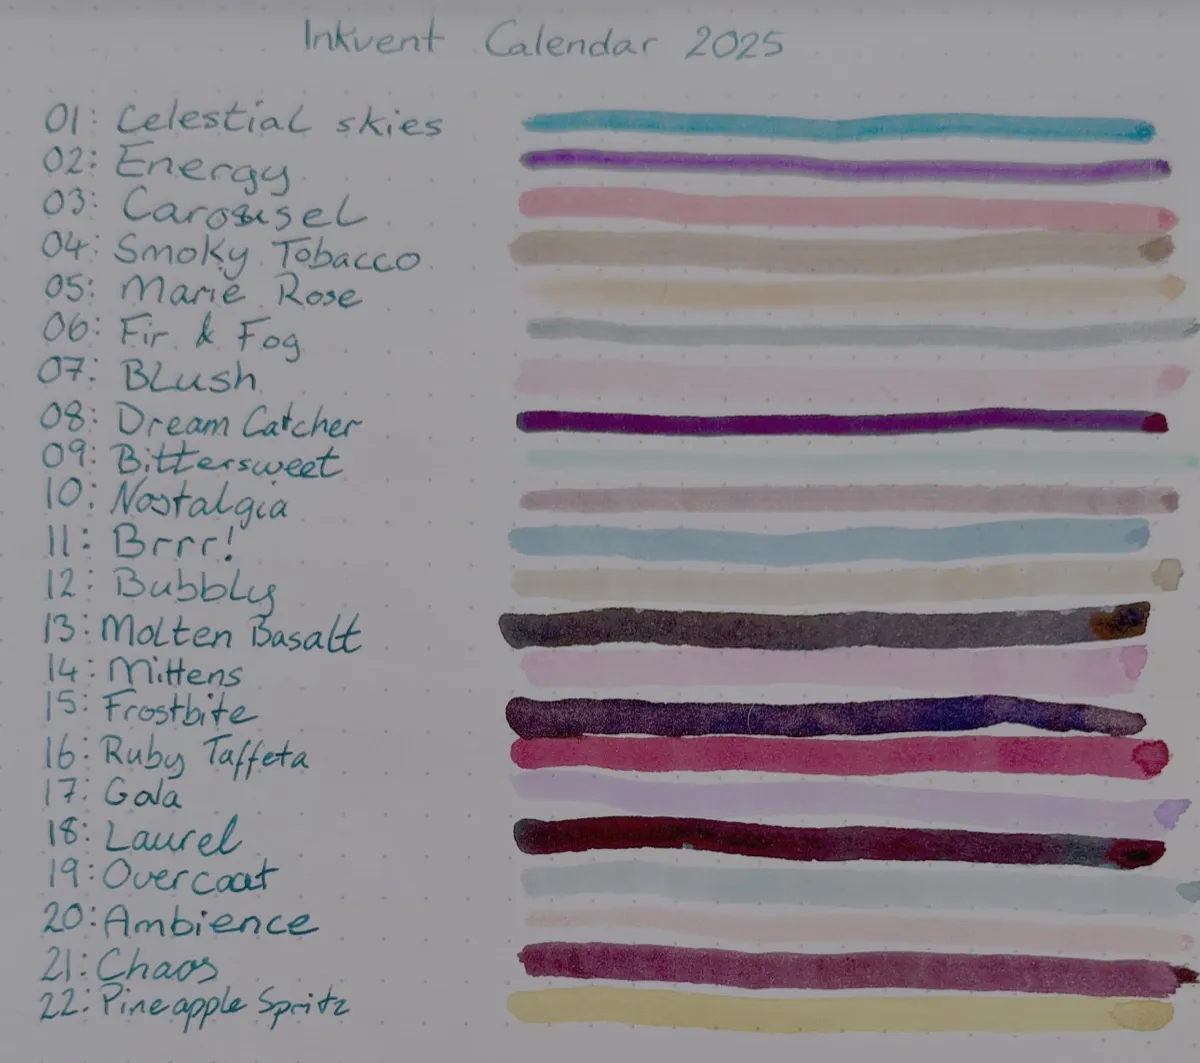 Inkvent Calendar 2025
01: Celestial skies
02: Energy
03: Carousel
04: Smoky Tobacco
05: Marie Rose
06: Fir & Fog
07: Blush
08: Dream Catcher
09: Bittersweet
10: Nostalgia
11: Brrr!
12: Bubbly
13: Molten Basalt
14: Mittens
15: Frostbite
16: Ruby Taffeta
17: Gala
18: Laurel
19: Overcoat
20: Ambience
21: Chaos
22: Pineapple Spritz